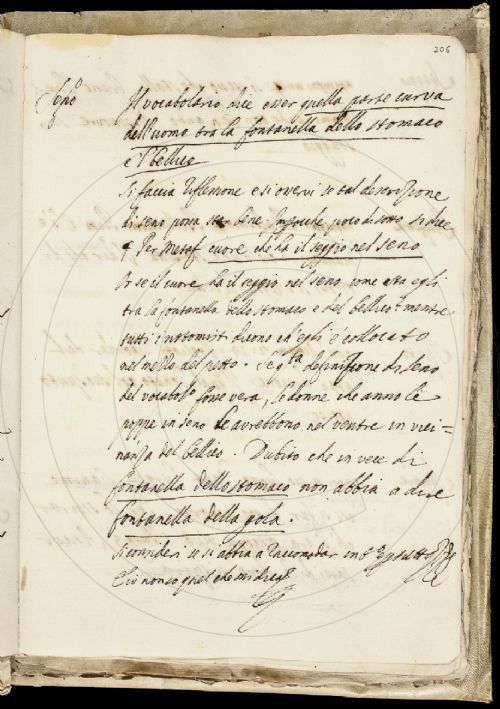 206
Seno
Il vocabolario dice esser quella parte curva
dell'uomo tra la fontanella dello stomaco
e 'l bellico
Si faccia riflessione e si osservi se tal descrizione
di seno possa star bene. Imperocche poco di sotto si dice
per Metaf cuore che ha il seggio nel seno
Or se il cuore ha il seggio nel seno come sta egli
tra la fontanella dello stomaco e del bellico? mentre
tutti i notomisti dicono ch'egli è collocato
nel mezzo del petto. Se qsta definizione di seno
del vocabolo fosse vera, le donne che anno le
poppe in seno le avrebbono nel ventre in vici=
nanza del bellico. Dubito che in vece di
fontanella dello stomaco non abbia a dire
fontanella della gola.
Si consideri se si abbia a raccomodar
C'io non so quel che mi dire